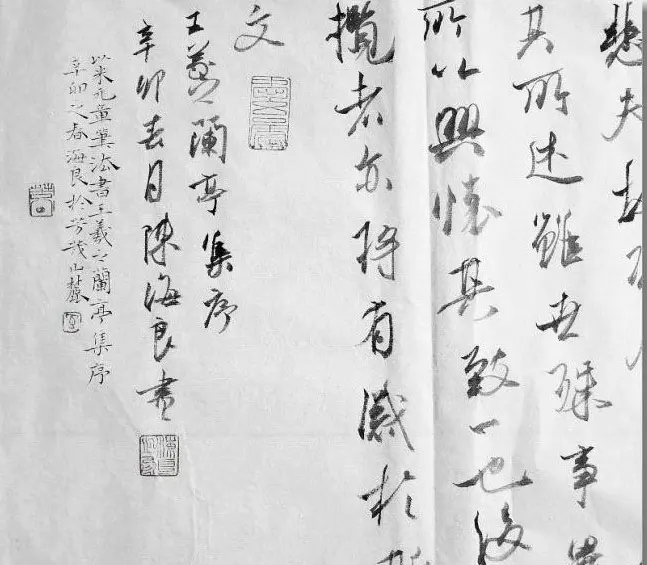 悲夫故列
其所述雖世殊事異
所以興懷其致一也後
攬者亦將有感於斯
文
王羲之蘭亭集序
辛卯春日陳海良書
以米元章筆法書王羲之蘭亭集序
辛卯之春海良於芳茂山麓